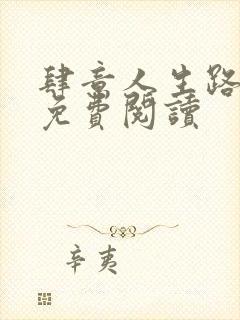 肆意人生路
免費閱讀
辛夷